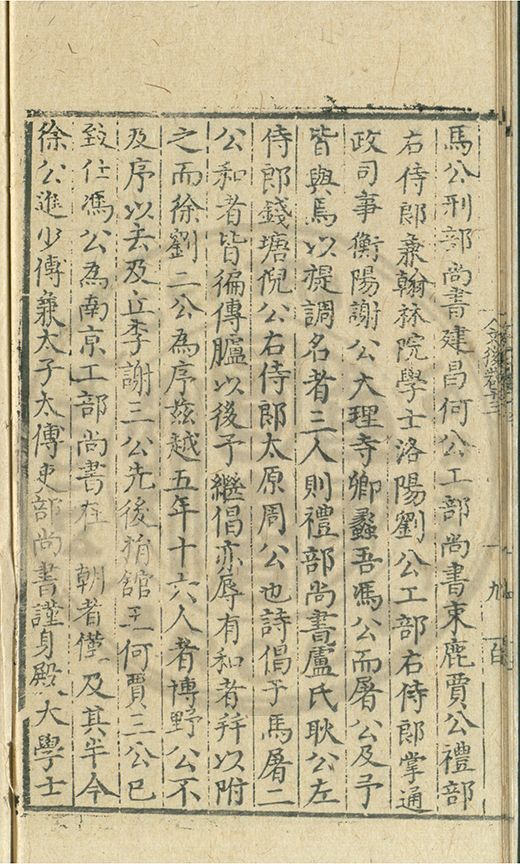 馬公刑部尚書建昌何公工部尚書束鹿賈公禮部
右侍郎兼翰林院學士洛陽劉公工部右侍郎掌通
政司事衡陽謝公大理寺卿蠡吾馮公而屠公及予
皆與焉以提調名者三人則禮部尚書盧氏耿公左
侍郎錢塘倪公右侍郎太原周公也詩倡于馬屠二
公和者皆徧傳臚以後予繼倡亦辱有和者並以附
之而徐劉二公為序茲越五年十六人者博野公不
及序以去及丘李謝三公先後捐館王何賈三公已
致仕馮公為南京工部尚書在 朝者僅及其半今
徐公進少傅兼太子太傅吏部尚書謹身殿大學士
文後卷三
九
百